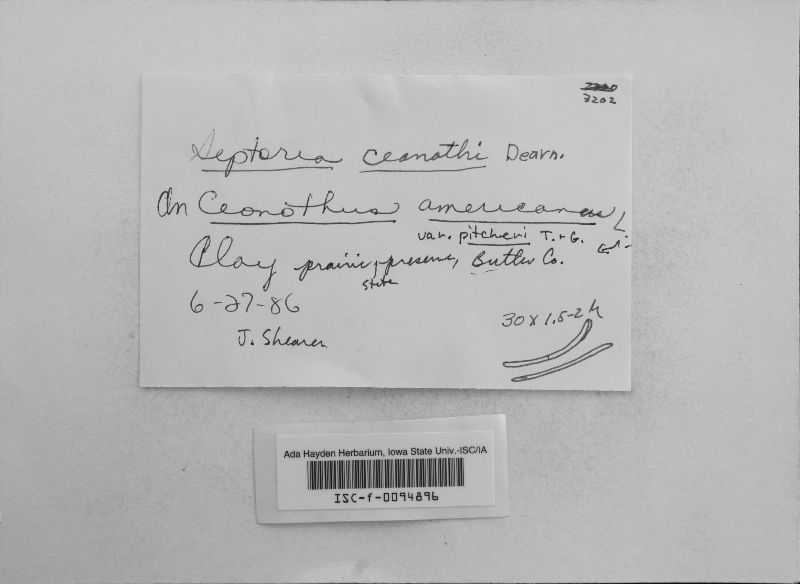 3202
Septoria ceanothi Dearn.
On Ceonothus americanus L
var. pitcheri T. & G.
Clay prairie preserve, Butler Co.
state
6-27-86
J. Shearer
30 x 1.5-2 μ
Ada Hayden Herbarium, Iowa State Univ.-ISC/IA
ISC-f-0094896